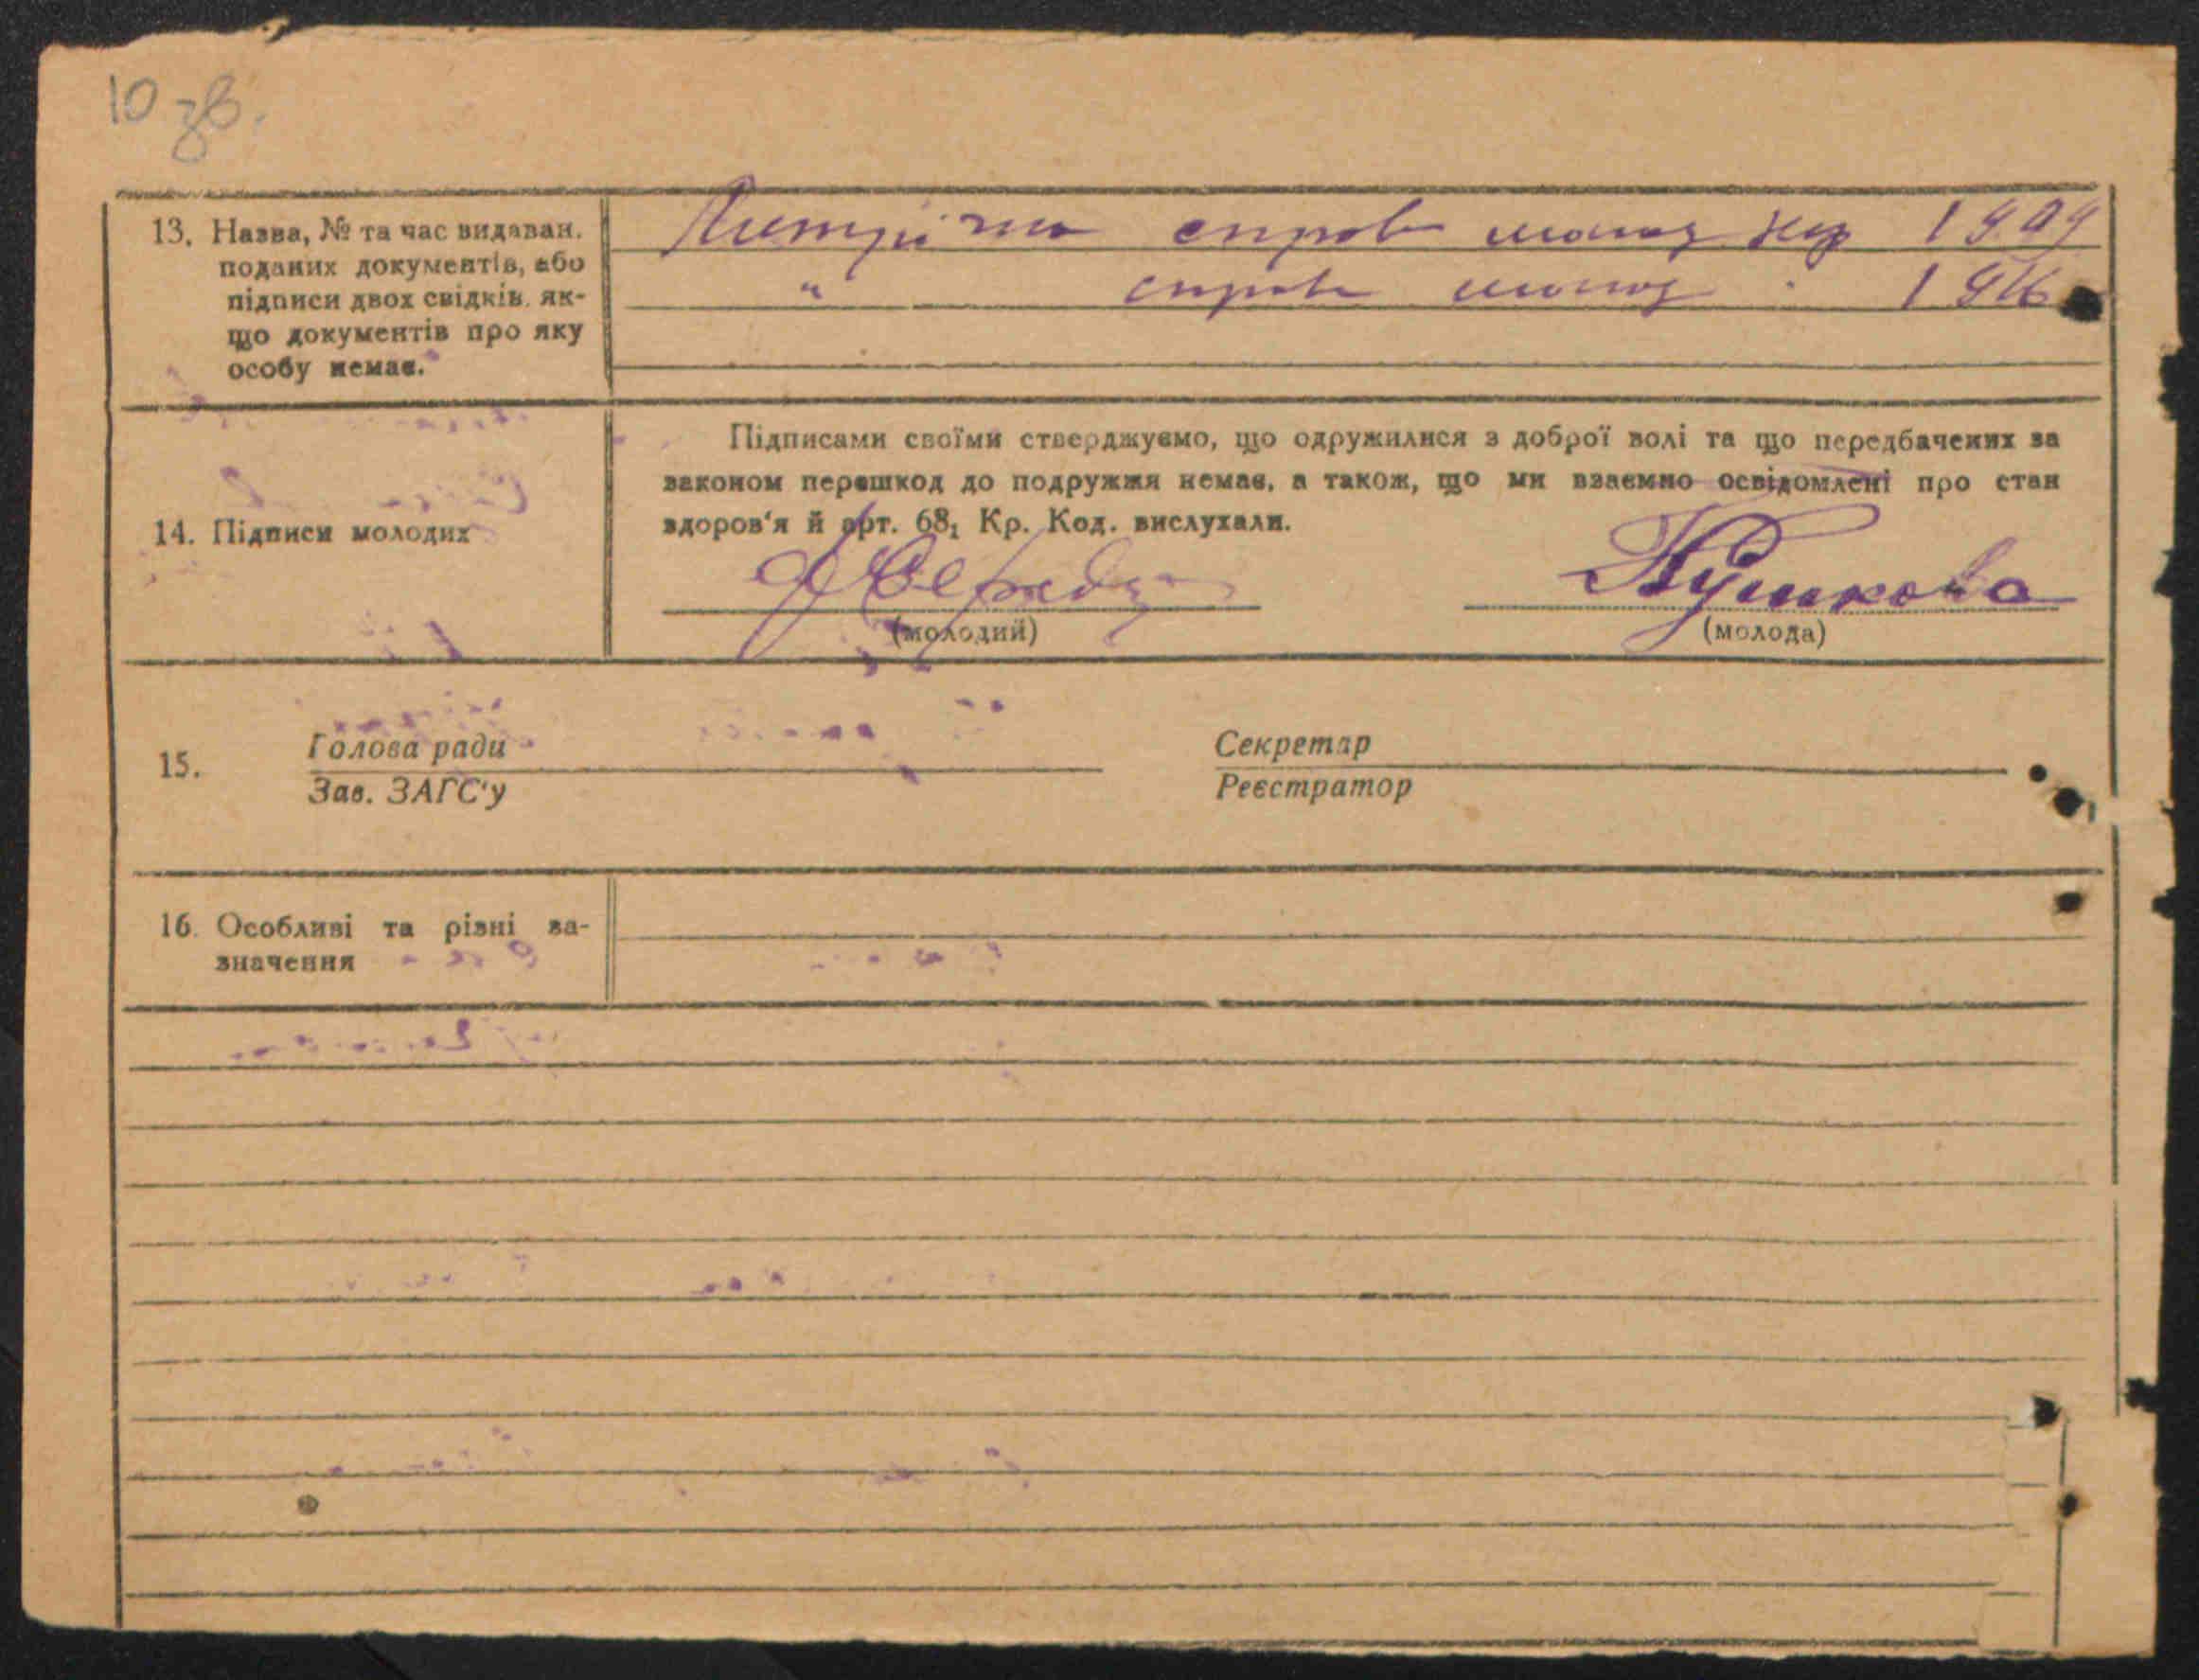 10 зв.
13. Назва, № та час видаван.
поданих документів, або
підписи двох свідків, як-
що документів про яку
особу немає.
Метрічна справ молод 1909
" справ молод
14. Підписи молодих
Підписами своїми стверджуємо, що одружилися з доброї волі та що передбачених за
законом перешкод до подружжя немає, а також, що ми взаємно освідомлені про стан
здоров'я й арт. 68₁ Кр. Код. вислухали.
Пушкова
(молодий) (молода)
15. Голова ради Секретар
Зав. ЗАГС'у Реєстратор
16. Особливі та різні за-
значення